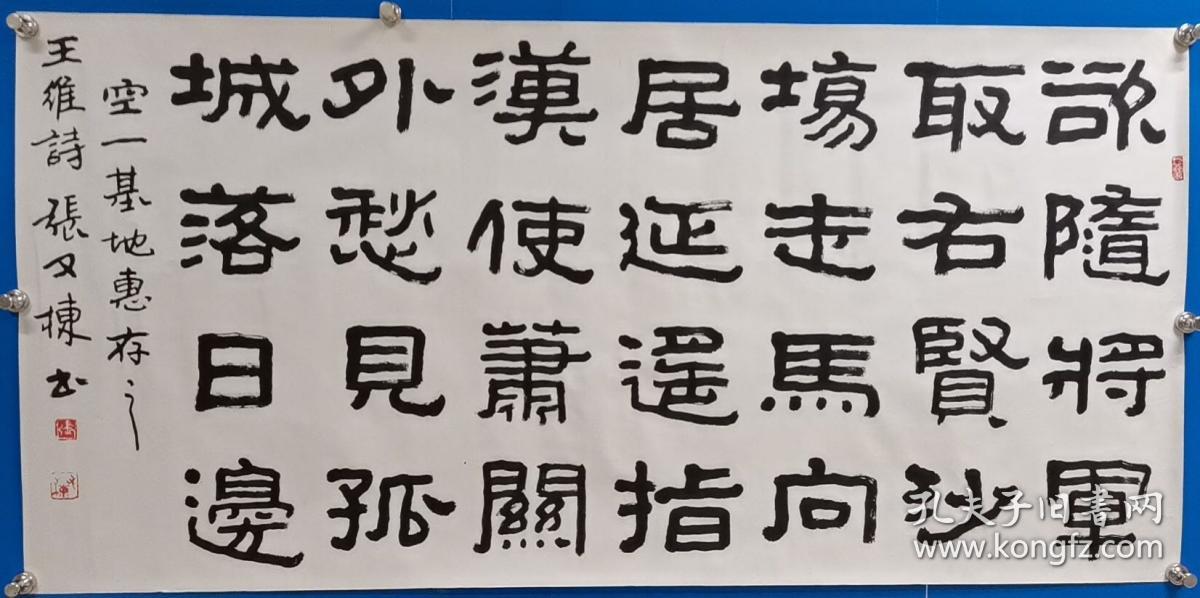 欲隨將軍
取右賢沙
場走馬向
居延遙指
漢使蕭關
外愁見孤
城落日邊
空一基地惠存之
王維詩 張又棟 书
孔夫子旧書网
www.kongfz.com